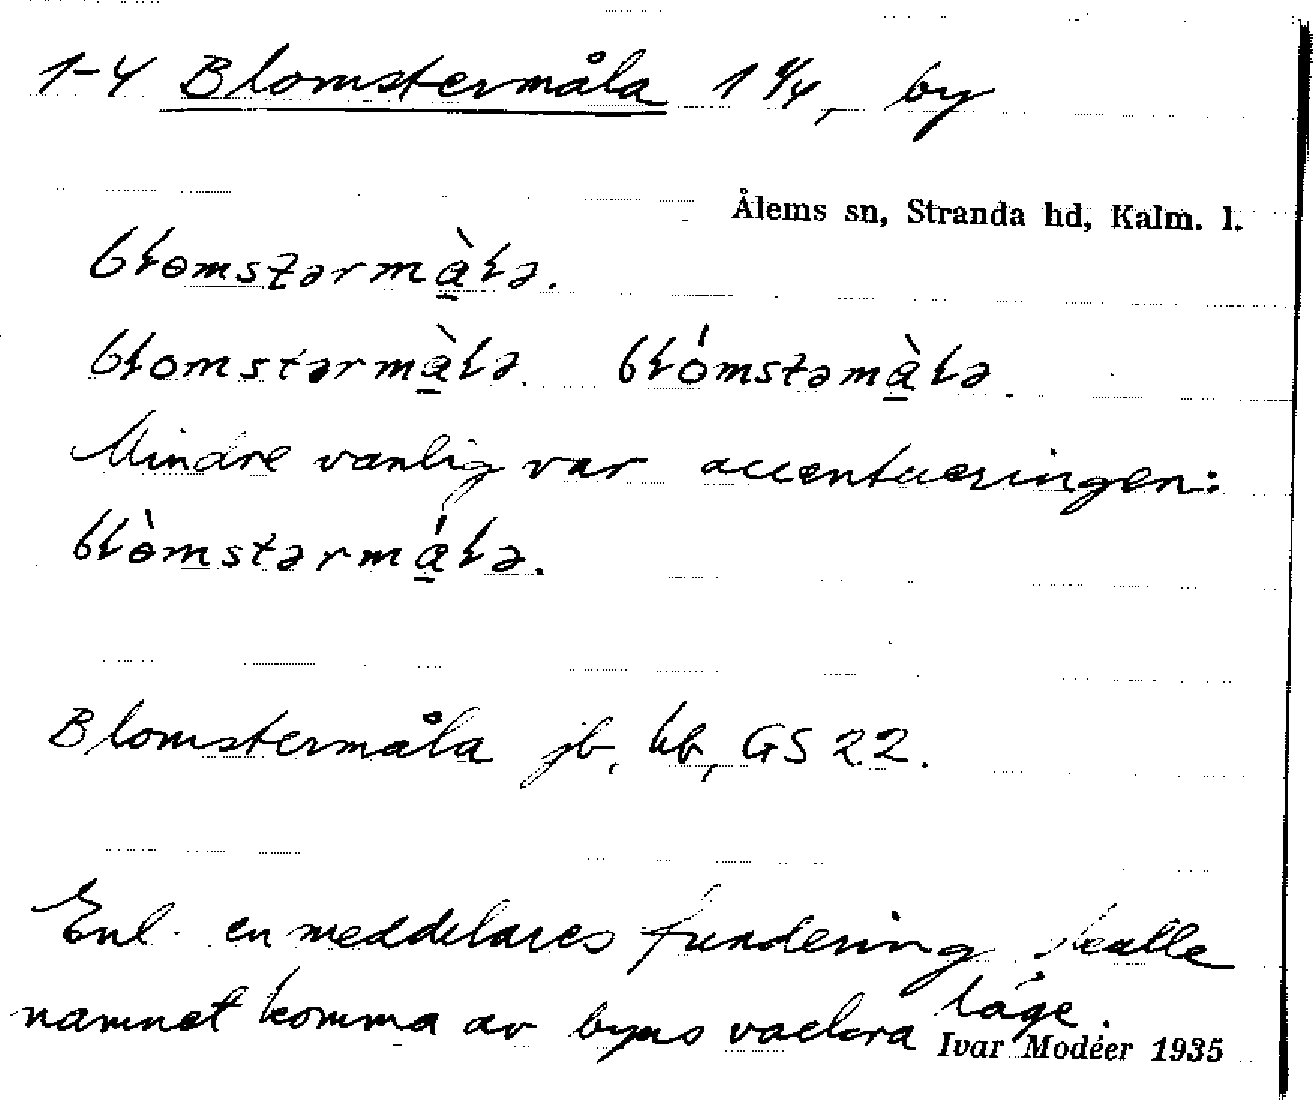 1-4 Blomstermåla 1 4/4, by
Ålems sn, Stranda hd, Kalm. l.
bɫomstərmàɫə.
bɫomstərmàɫə. bɫómstəmàɫə
Mindre vanlig var accentueringen:
bɫòmstərmáɫə.
Blomstermåla jb, hb, GS 22.
Enl. en meddelares fundering skulle
namnet komma av byns vackra läge.
Ivar Modéer 1935